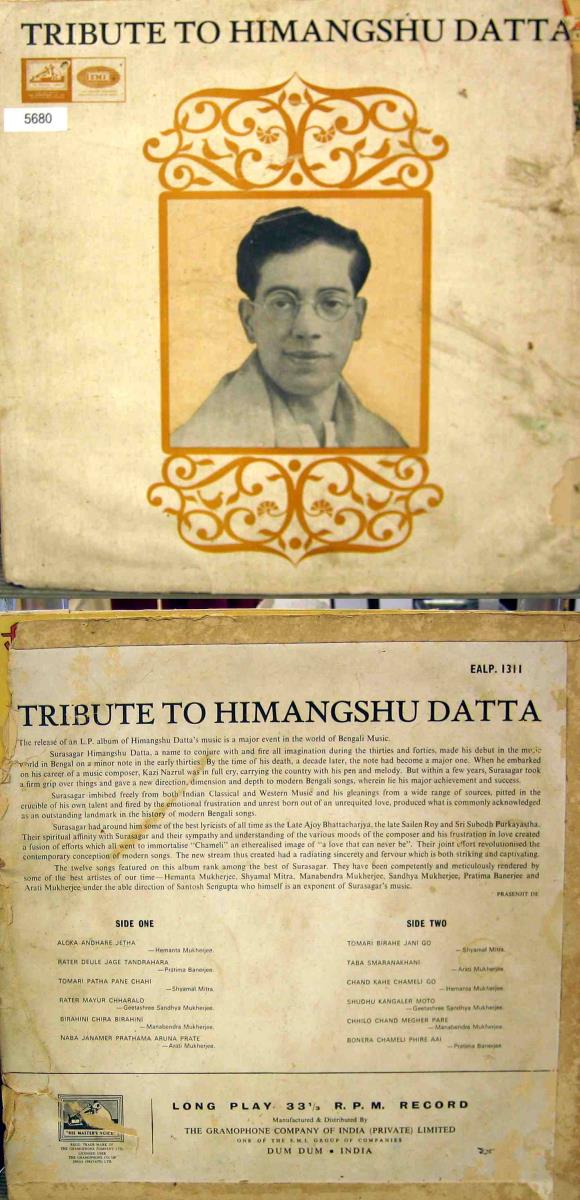 TRIBUTE TO HIMANGSHU DATTA
EMI
5680
EALP. 1311
TRIBUTE TO HIMANGSHU DATTA
The release of an L.P. album of Himangshu Datta's music is a major event in the world of Bengali Music.
Surasagar Himangshu Datta, a name to conjure with and fire all imagination during the thirties and forties, made his debut in the music
world in Bengal on a minor note in the early thirties. By the time of his death, a decade later, the note had become a major one. When he embarked
on his career of a music composer, Kazi Nazrul was in full cry, carrying the country with his pen and melody. But within a few years, Surasagar took
a firm grip over things and gave a new direction, dimension and depth to modern Bengali songs, wherein lie his major achievement and success.
Surasagar imbibed freely from both Indian Classical and Western Music and his gleanings from a wide range of sources, pitted in the
crucible of his own talent and fired by the emotional frustration and unrest born out of an unrequited love, produced what is commonly acknowledged
as an outstanding landmark in the history of modern Bengali songs.
Surasagar had around him some of the best lyricists of all time as the Late Ajoy Bhattacharjya, the late Sailen Roy and Sri Subodh Purkayastha.
Their spiritual affinity with Surasagar and their sympathy and understanding of the various moods of the composer and his frustration in love created
a fusion of efforts which all went to immortalise "Chameli" an etherealised image of "a love that can never be". Their joint effort revolutionised the
contemporary conception of modern songs. The new stream thus created had a radiating sincerety and fervour which is both striking and captivating.
The twelve songs featured on this album rank among the best of Surasagar. They have been competently and meticulously rendered by
some of the best artistes of our time—Hemanta Mukherjee, Shyamal Mitra, Manabendra Mukherjee, Sandhya Mukherjee, Pratima Banerjee and
Arati Mukherjee under the able direction of Santosh Sengupta who himself is an exponent of Surasagar's music.
PRASENJIT DE
SIDE ONE
ALOKA ANDHARE JETHA
—Hemanta Mukherjee.
RATER DEULE JAGE TANDRAHARA
—Pratima Banerjee.
TOMARI PATHA PANE CHAHI
—Shyamal Mitra.
RATER MAYUR CHHARALO
—Geetashree Sandhya Mukherjee.
BIRAHINI CHIRA BIRAHINI
—Manabendra Mukherjee.
NABA JANAMER PRATHAMA ARUNA PRATE
—Arati Mukherjee.
SIDE TWO
TOMARI BIRAHE JANI GO
—Shyamal Mitra.
TABA SMARANAKHANI
—Arati Mukherjee
CHAND KAHE CHAMELI GO
—Hemanta Mukherjee
SHUDHU KANGALER MOTO
—Geetashree Sandhya Mukherjee.
CHHILO CHAND MEGHER PARE
—Manabendra Mukherjee
BONERA CHAMELI PHIRE AAI
—Pratima Banerjee.
"HIS MASTER'S VOICE"
REGD. TRADE MARK OF
THE GRAMOPHONE COMPANY LTD.
LICENSED USER
THE GRAMOPHONE CO OF
INDIA (PRIVATE) LTD.
LONG PLAY 33⅓ R.P.M. RECORD
Manufactured & Distributed By
THE GRAMOPHONE COMPANY OF INDIA (PRIVATE) LIMITED
ONE OF THE E.M.I. GROUP OF COMPANIES
DUM DUM • INDIA